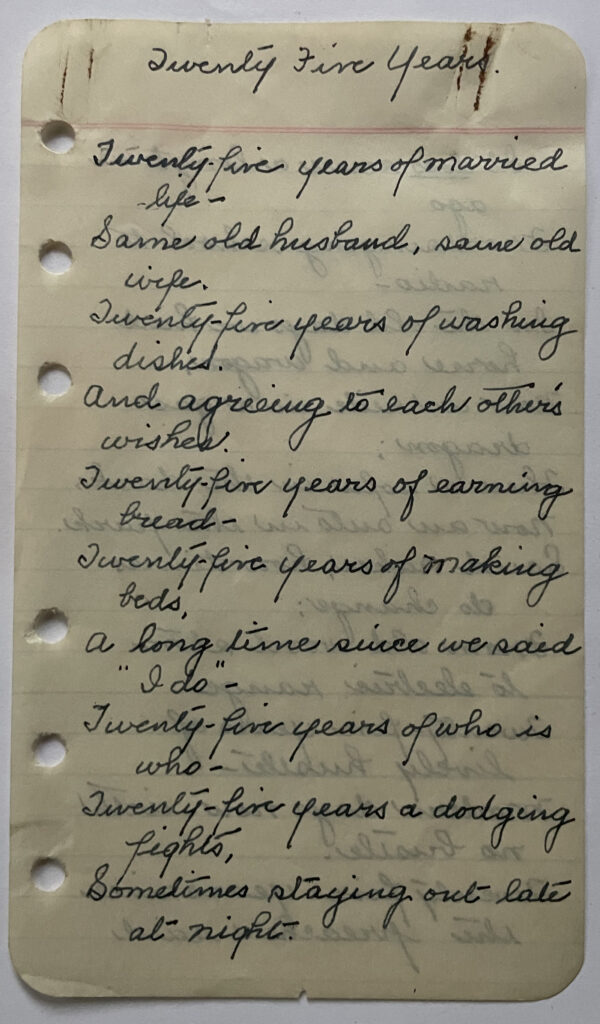 Twenty Five Years.
Twenty-five years of married
life-
Same old husband, same old
wife.
Twenty-five years of washing
dishes.
And agreeing to each other's
wishes.
Twenty-five years of earning
bread-
Twenty-five years of making
beds,
A long time since we said
"I do"-
Twenty-five years of who is
who-
Twenty-five years a dodging
fights,
Sometimes staying out late
at night.